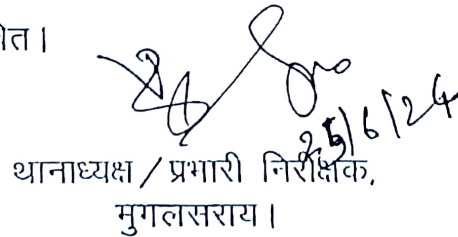 ेत।
25/6/24
थानाध्यक्ष / प्रभारी निरीक्षक,
मुगलसराय।